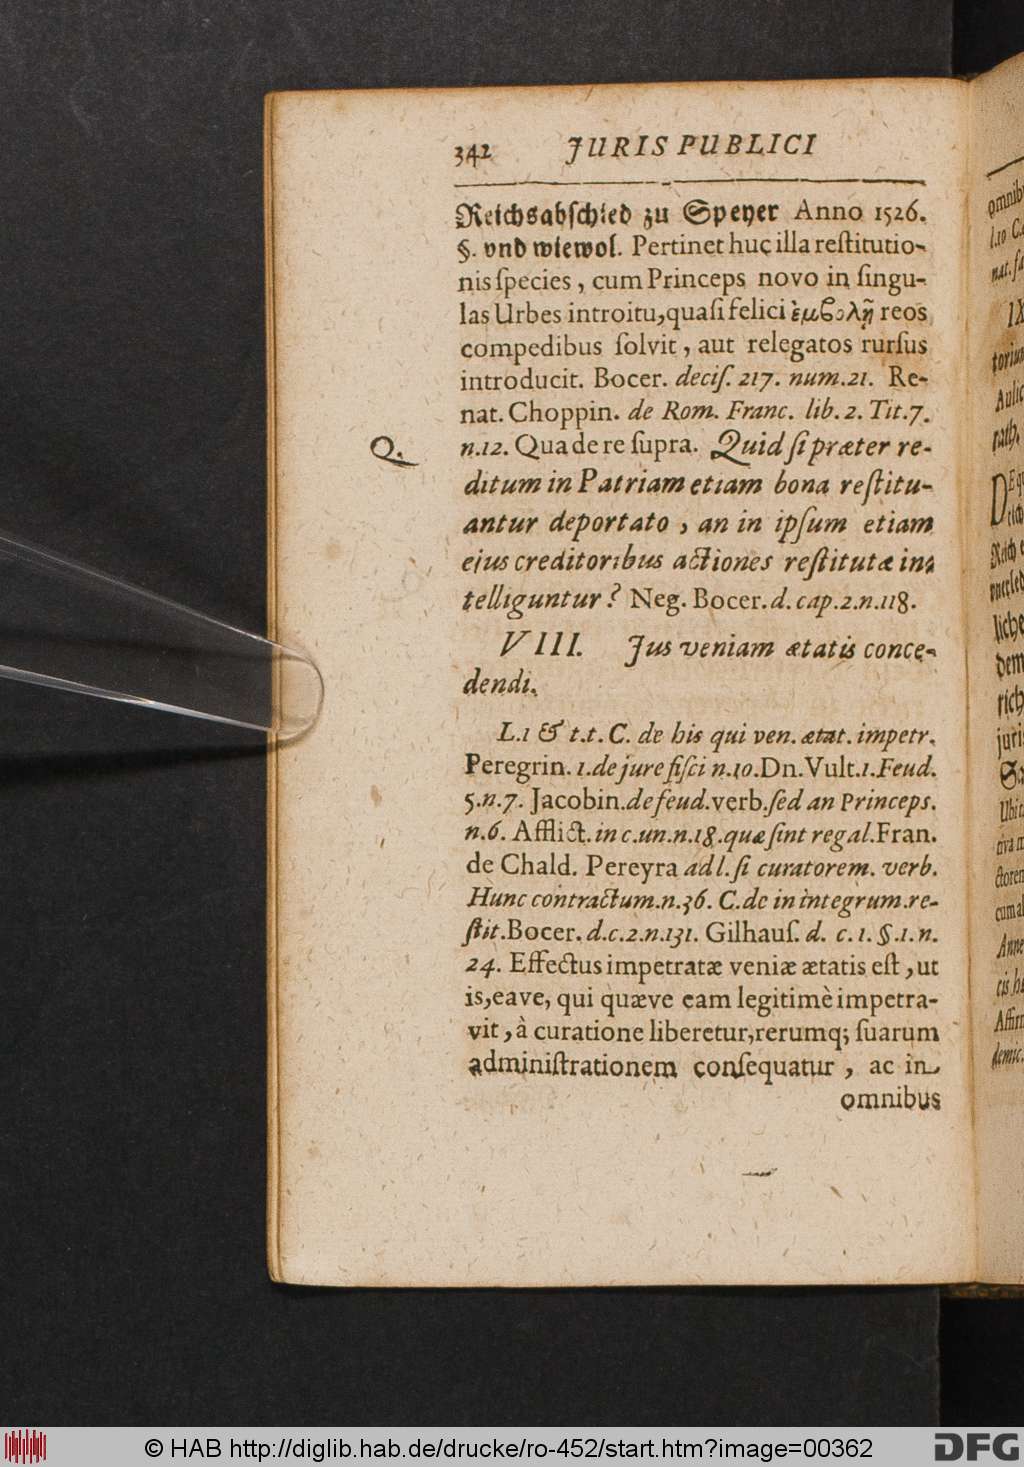 342 JURIS PUBLICI
Reichsabſchied zu Speyer Anno 1526.
§. vnd wiewol. Pertinet huc illa reſtitutio-
nis ſpecies, cum Princeps novo in ſingu-
las Urbes introitu, quaſi felici ἐμβολῇ reos
compedibus ſolvit, aut relegatos rurſus
introducit. Bocer. deciſ. 217. num. 21. Re-
nat. Choppin. de Rom. Franc. lib. 2. Tit. 7.
Q. n. 12. Qua de re ſupra. Quid ſi præter re-
ditum in Patriam etiam bona reſtitu-
antur deportato, an in ipſum etiam
ejus creditoribus actiones reſtitutæ in-
telliguntur? Neg. Bocer. d. cap. 2. n. 118.
VIII. Jus veniam ætatis conce-
dendi.
L. 1 & t. t. C. de his qui ven. ætat. impetr.
Peregrin. 1. de jure fiſci n. 10. Dn. Vult. 1. Feud.
5. n. 7. Jacobin. de feud. verb. ſed an Princeps.
n. 6. Afflict. in c. un. n. 18. quæ ſint regal. Fran.
de Chald. Pereyra ad l. ſi curatorem. verb.
Hunc contractum. n. 36. C. de in integrum. re-
ſtit. Bocer. d. c. 2. n. 131. Gilhauſ. d. c. 1. §. 1. n.
24. Effectus impetratæ veniæ ætatis eſt, ut
is, eave, qui quæve eam legitimè impetra-
vit, à curatione liberetur, rerumq; ſuarum
adminiſtrationem conſequatur, ac in
omnibus
omnib
l. 10 C.
nat. ſa
IX
torium
Aulic
rath.
DEq
Reich
liche
dem
rich
juri
Ubi
ctoren
cum al
Anne
cis h
Affirm
demic.
© HAB http://diglib.hab.de/drucke/ro-452/start.htm?image=00362
DFG